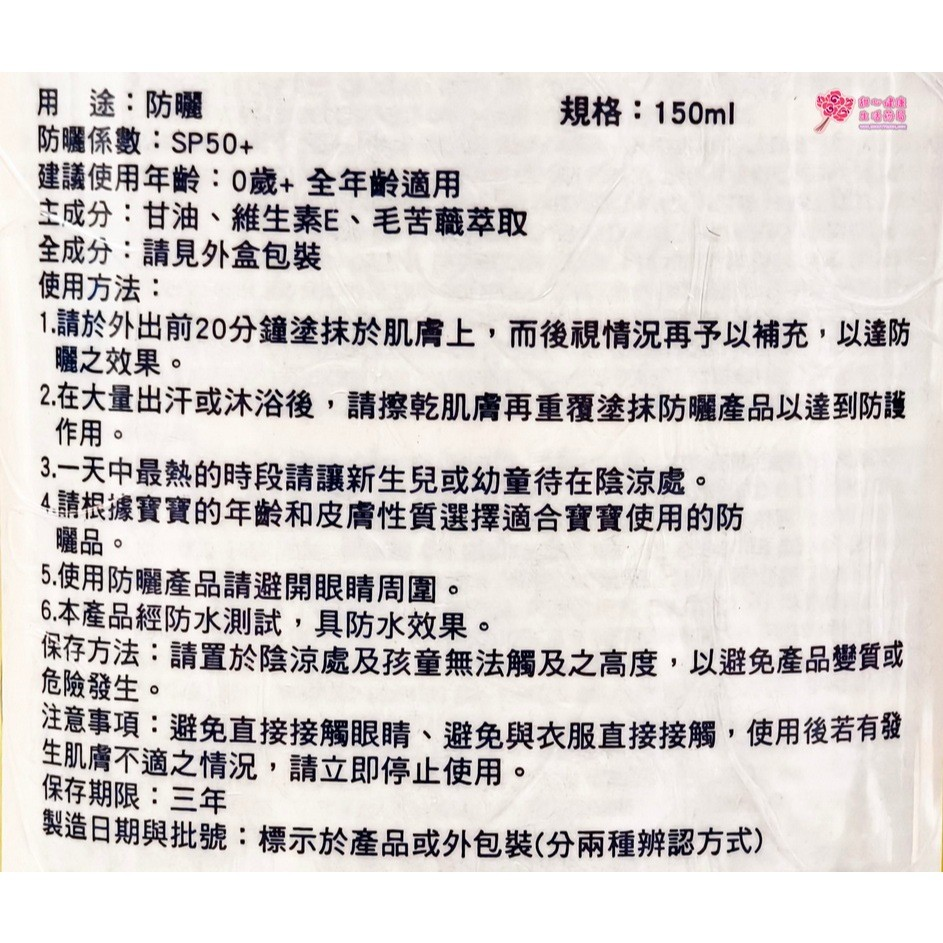 用　途：防曬
規格：150ml
甜心健康
生活藥局
防曬係數：SP50+
建議使用年齡：0歲+ 全年齡適用
主成分：甘油、維生素E、毛苦蘵萃取
全成分：請見外盒包裝
使用方法：
1.請於外出前20分鐘塗抹於肌膚上，而後視情況再予以補充，以達防
曬之效果。
2.在大量出汗或沐浴後，請擦乾肌膚再重覆塗抹防曬產品以達到防護
作用。
3.一天中最熱的時段請讓新生兒或幼童待在陰涼處。
4.請根據寶寶的年齡和皮膚性質選擇適合寶寶使用的防
曬品。
5.使用防曬產品請避開眼睛周圍。
6.本產品經防水測試，具防水效果。
保存方法：請置於陰涼處及孩童無法觸及之高度，以避免產品變質或
危險發生。
注意事項：避免直接接觸眼睛、避免與衣服直接接觸，使用後若有發
生肌膚不適之情況，請立即停止使用。
保存期限：三年
製造日期與批號：標示於產品或外包裝(分兩種辨認方式)